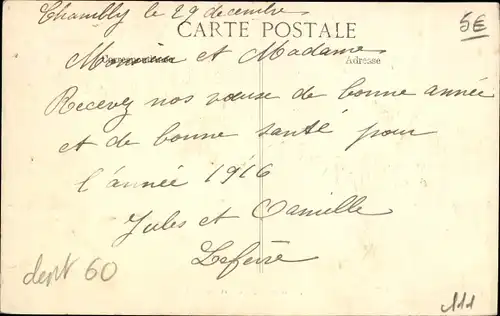 Chambly le 29 decembre
5€
CARTE POSTALE
Monsieur et Madame
Correspondance
Adresse
Recevez nos voeuse de bonne année
et de bonne santé pour
l'année 1916
Jules et Camille
Lefevre
dept 60
111